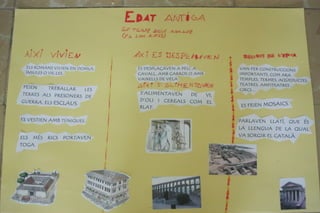 EDAT ANTIGA
AIXÍ VIVIEN
ELS ROMANS VIVIEN EN DOMUS,
INSULES O VIL·LES.
FEIEN TREBALLAR LES
TERRES ALS PRESONERS DE
GUERRA, ELS ESCLAUS
ES VESTIEN AMB TÚNIQUES.
ELS MÉS RICS PORTAVEN
TOGA.
AIXÍ ES DESPLAÇAVEN
ES DESPLAÇAVEN A PEU, A
CAVALL, AMB CARROS O AMB
VAIXELLS DE VELA
S'ALIMENTAVEN DE VI,
D'OLI I CEREALS COM EL
BLAT.
VAN FER CONSTRUCCIONS
IMPORTANTS COM ARA
TEMPLES, TERMES, AQÜEDUCTES,
TEATRES, AMFITEATRES
ES FEIEN MOSAICS
PARLAVEN LLATÍ, QUE ÉS
LA LLENGUA DE LA QUAL
VA SORGIR EL CATALÀ